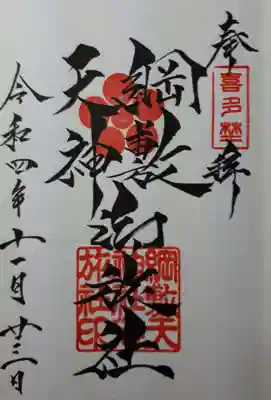 奉拝
喜多埜
綱敷
天神
御旅社
綱敷天
神社御
旅社印
令和四年十一月廿三日